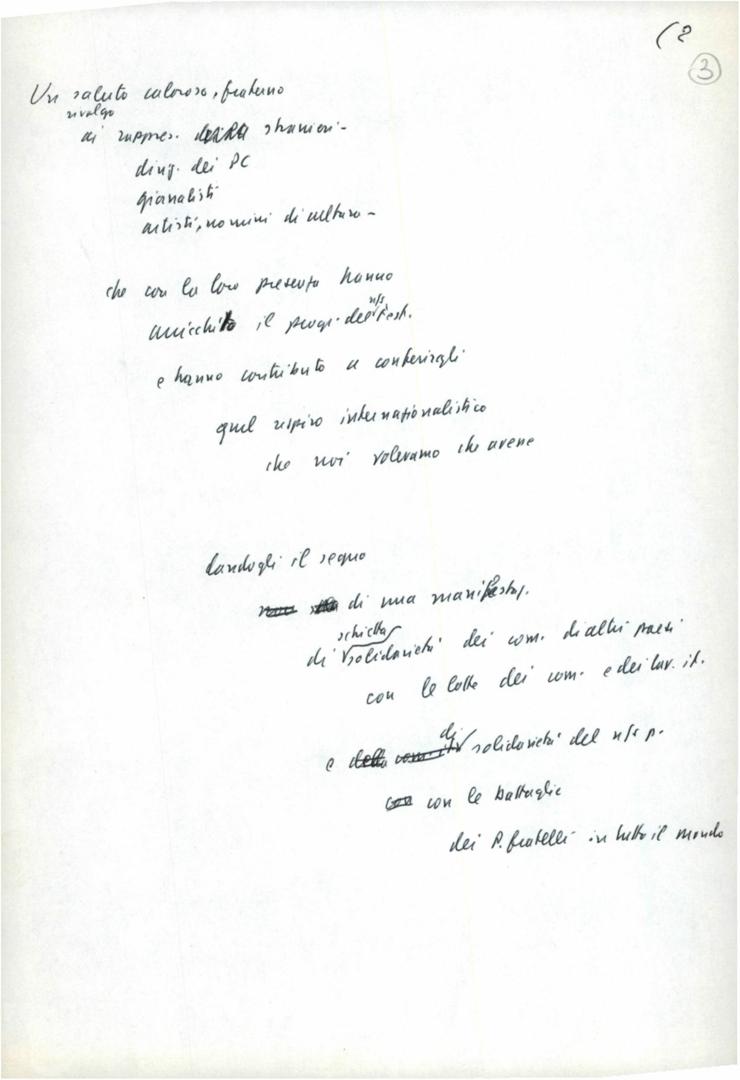 (2
3
Un saluto caloroso, fraterno
rivolgo
ai rappres. stranieri -
dirig. dei PC
giornalisti
artisti, uomini di cultura -
che con la loro presenza hanno
arricchito il progr. del nfs Fest.
e hanno contributo a conferirgli
quel respiro internazionalistico
che noi volevamo che avesse
dandogli il segno
di una manifestaz.
schietta
di solidarietà dei com. di altri paesi
con le lotte dei com. e dei lav. it.
e di solidarietà del nfs p.
con le battaglie
dei P. fratelli in tutto il mondo